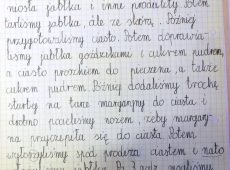 niosła jabłka i inne produkty. Potem
tarliśmy jabłka, ale ze skórą. Później
przygotowaliśmy ciasto. Potem doprawia-
liśmy jabłka goździkami i cukrem pudrem,
a ciasto proszkiem do pieczenia, a także
cukrem pudrem. Później dodaliśmy trochę
startej na tarce margaryny do ciasta i
drobno pocięliśmy nożem, żeby margary-
na przyczepiła się do ciasta. Potem
wyłożyliśmy spód ciastem i na to
jabłka. Po 3 godz.